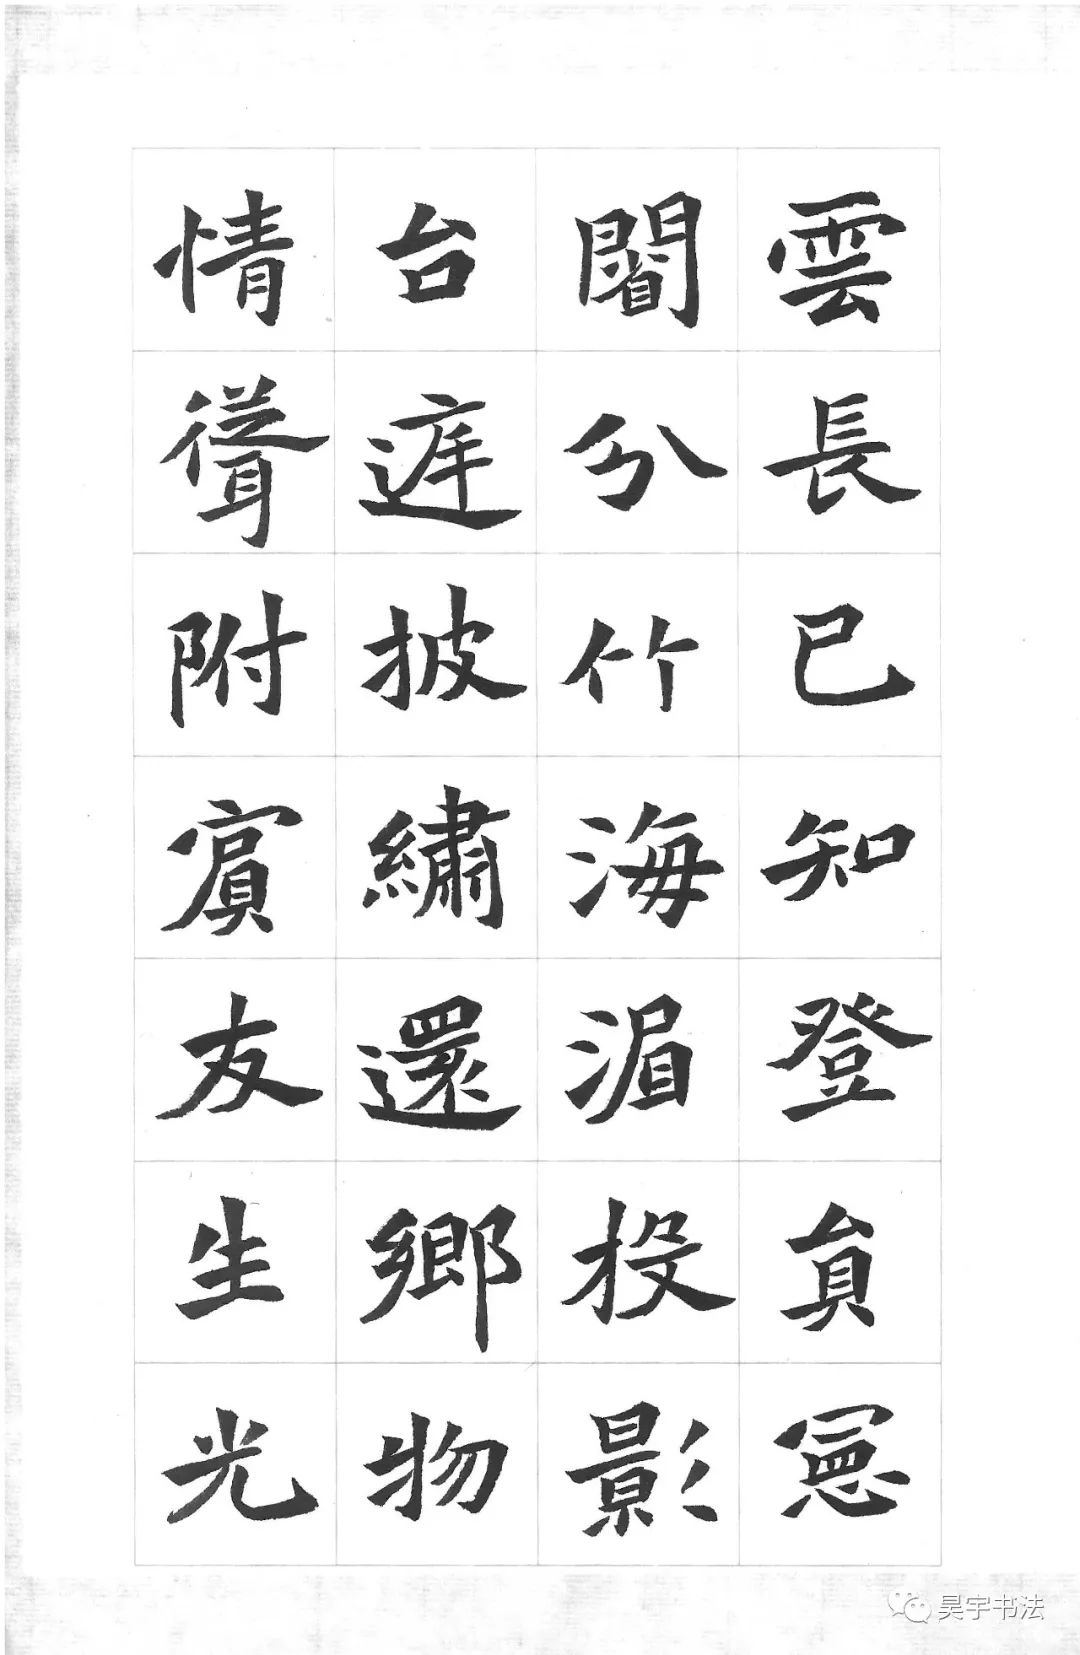 雲長已知登貟憲
分竹海湄投影
台披繡還鄉物
情聳附賓友生光
昊宇书法